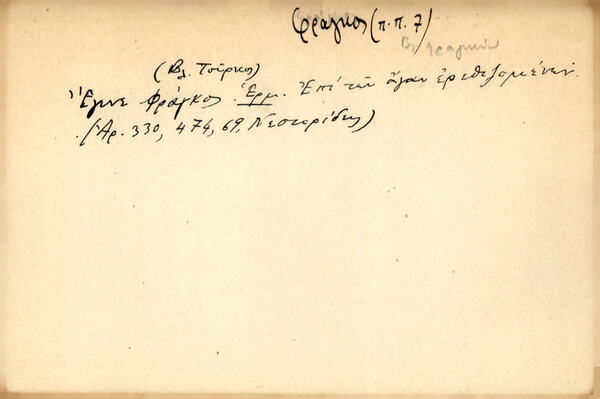 φράγκος (π.π. 7)
Βλ. Φραγκιά
(Βλ. Τούρκος)
Ἔγινε Φράγκος. Ἑρμ. Ἐπὶ τῶν ἄγαν ἐρεθιζομένων.
(Ἀρ. 330, 474, 69, Νεστορίδης)